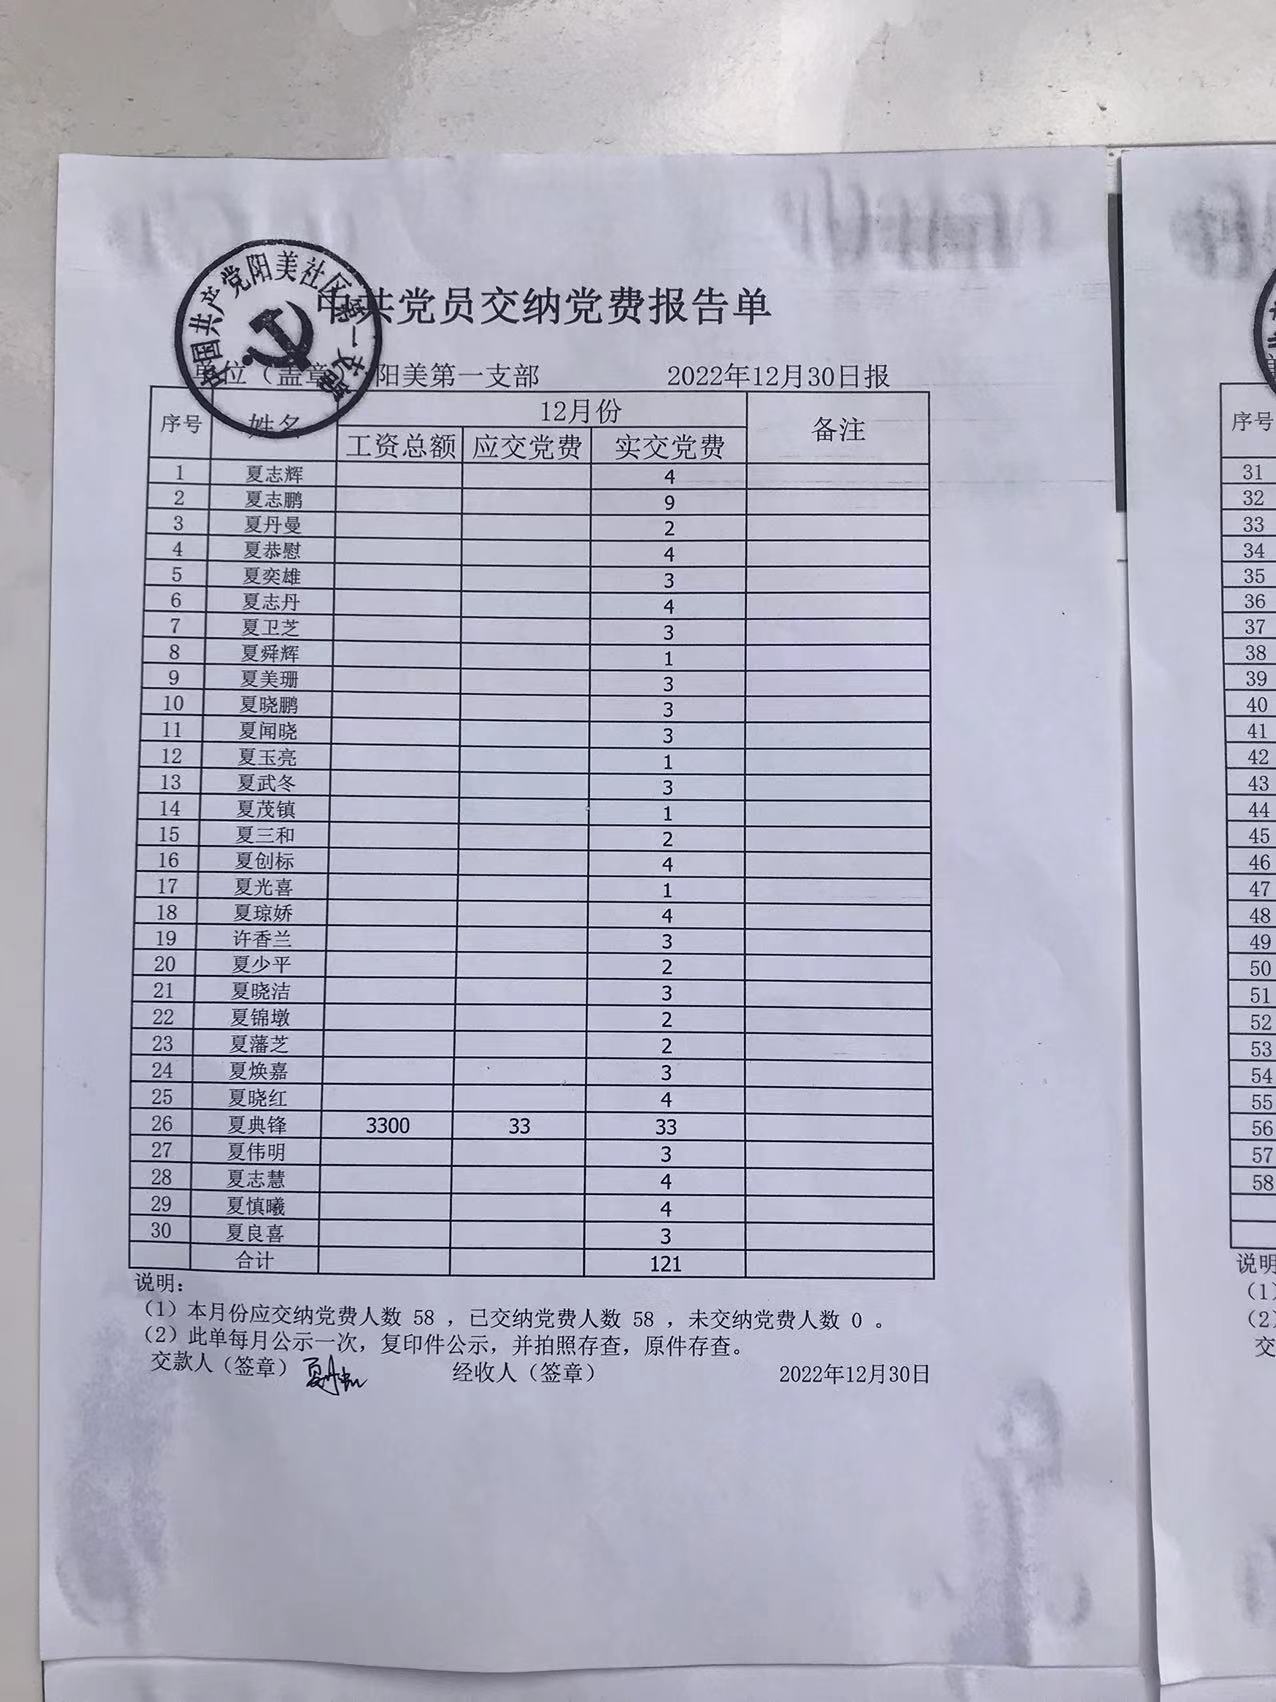 中国共产党阳美社区第一支部
中共党员交纳党费报告单
单位（盖章） 阳美第一支部 2022年12月30日报
序号 姓名 12月份 备注
工资总额 应交党费 实交党费
1 夏志辉 4
2 夏志鹏 9
3 夏丹曼 2
4 夏恭慰 4
5 夏奕雄 3
6 夏志丹 4
7 夏卫芝 3
8 夏舜辉 1
9 夏美珊 3
10 夏晓鹏 3
11 夏闻晓 3
12 夏玉亮 1
13 夏武冬 3
14 夏茂镇 1
15 夏三和 2
16 夏创标 4
17 夏光喜 1
18 夏琼娇 4
19 许香兰 3
20 夏少平 2
21 夏晓洁 3
22 夏锦墩 2
23 夏藩芝 2
24 夏焕嘉 3
25 夏晓红 4
26 夏典锋 3300 33 33
27 夏伟明 3
28 夏志慧 4
29 夏慎曦 4
30 夏良喜 3
合计 121
说明：
（1）本月份应交纳党费人数 58 ，已交纳党费人数 58 ，未交纳党费人数 0 。
（2）此单每月公示一次，复印件公示，并拍照存查，原件存查。
交款人（签章） 经收人（签章） 2022年12月30日
序号
31
32
33
34
35
36
37
38
39
40
41
42
43
44
45
46
47
48
49
50
51
52
53
54
55
56
57
58
说明
（1）
（2）
交